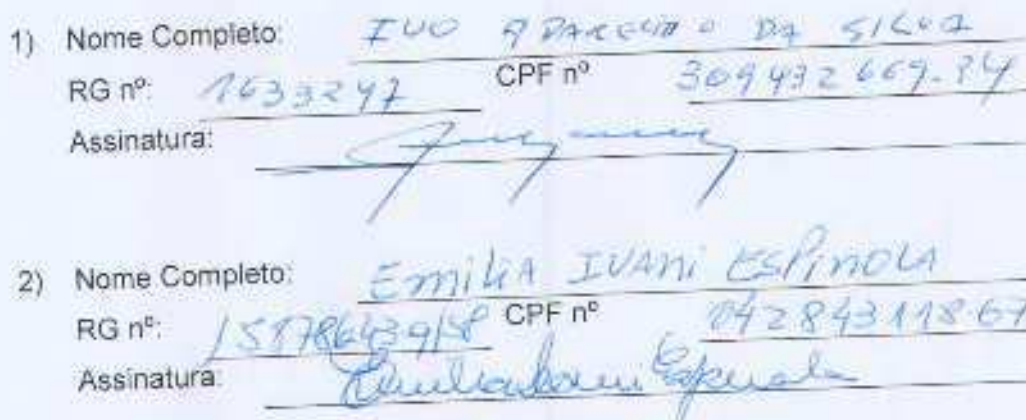 1) Nome Completo: IVO APARECIDO DA SILVA
RG nº: 1633297 CPF nº 309432669-34
Assinatura:
2) Nome Completo: Emilia IVANI ESPINOLA
RG nº: CPF nº 04284311867
Assinatura: Emilia Ivani Espinola